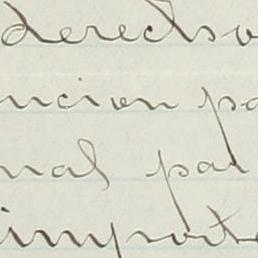 derechos
ncion pa
nal pat
importe